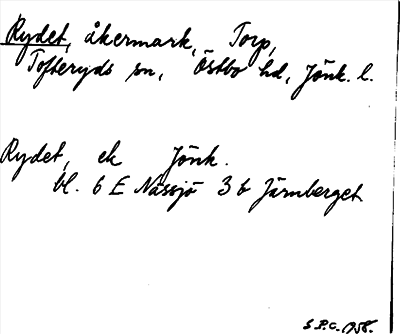 Rydet, åkermark, Torp,
Tofteryds sn, Östbo hd, Jönk. l.
Rydet, ek Jönk.
bl. 6 E Nässjö 3 b Järnberget
S.P.C. 1958.